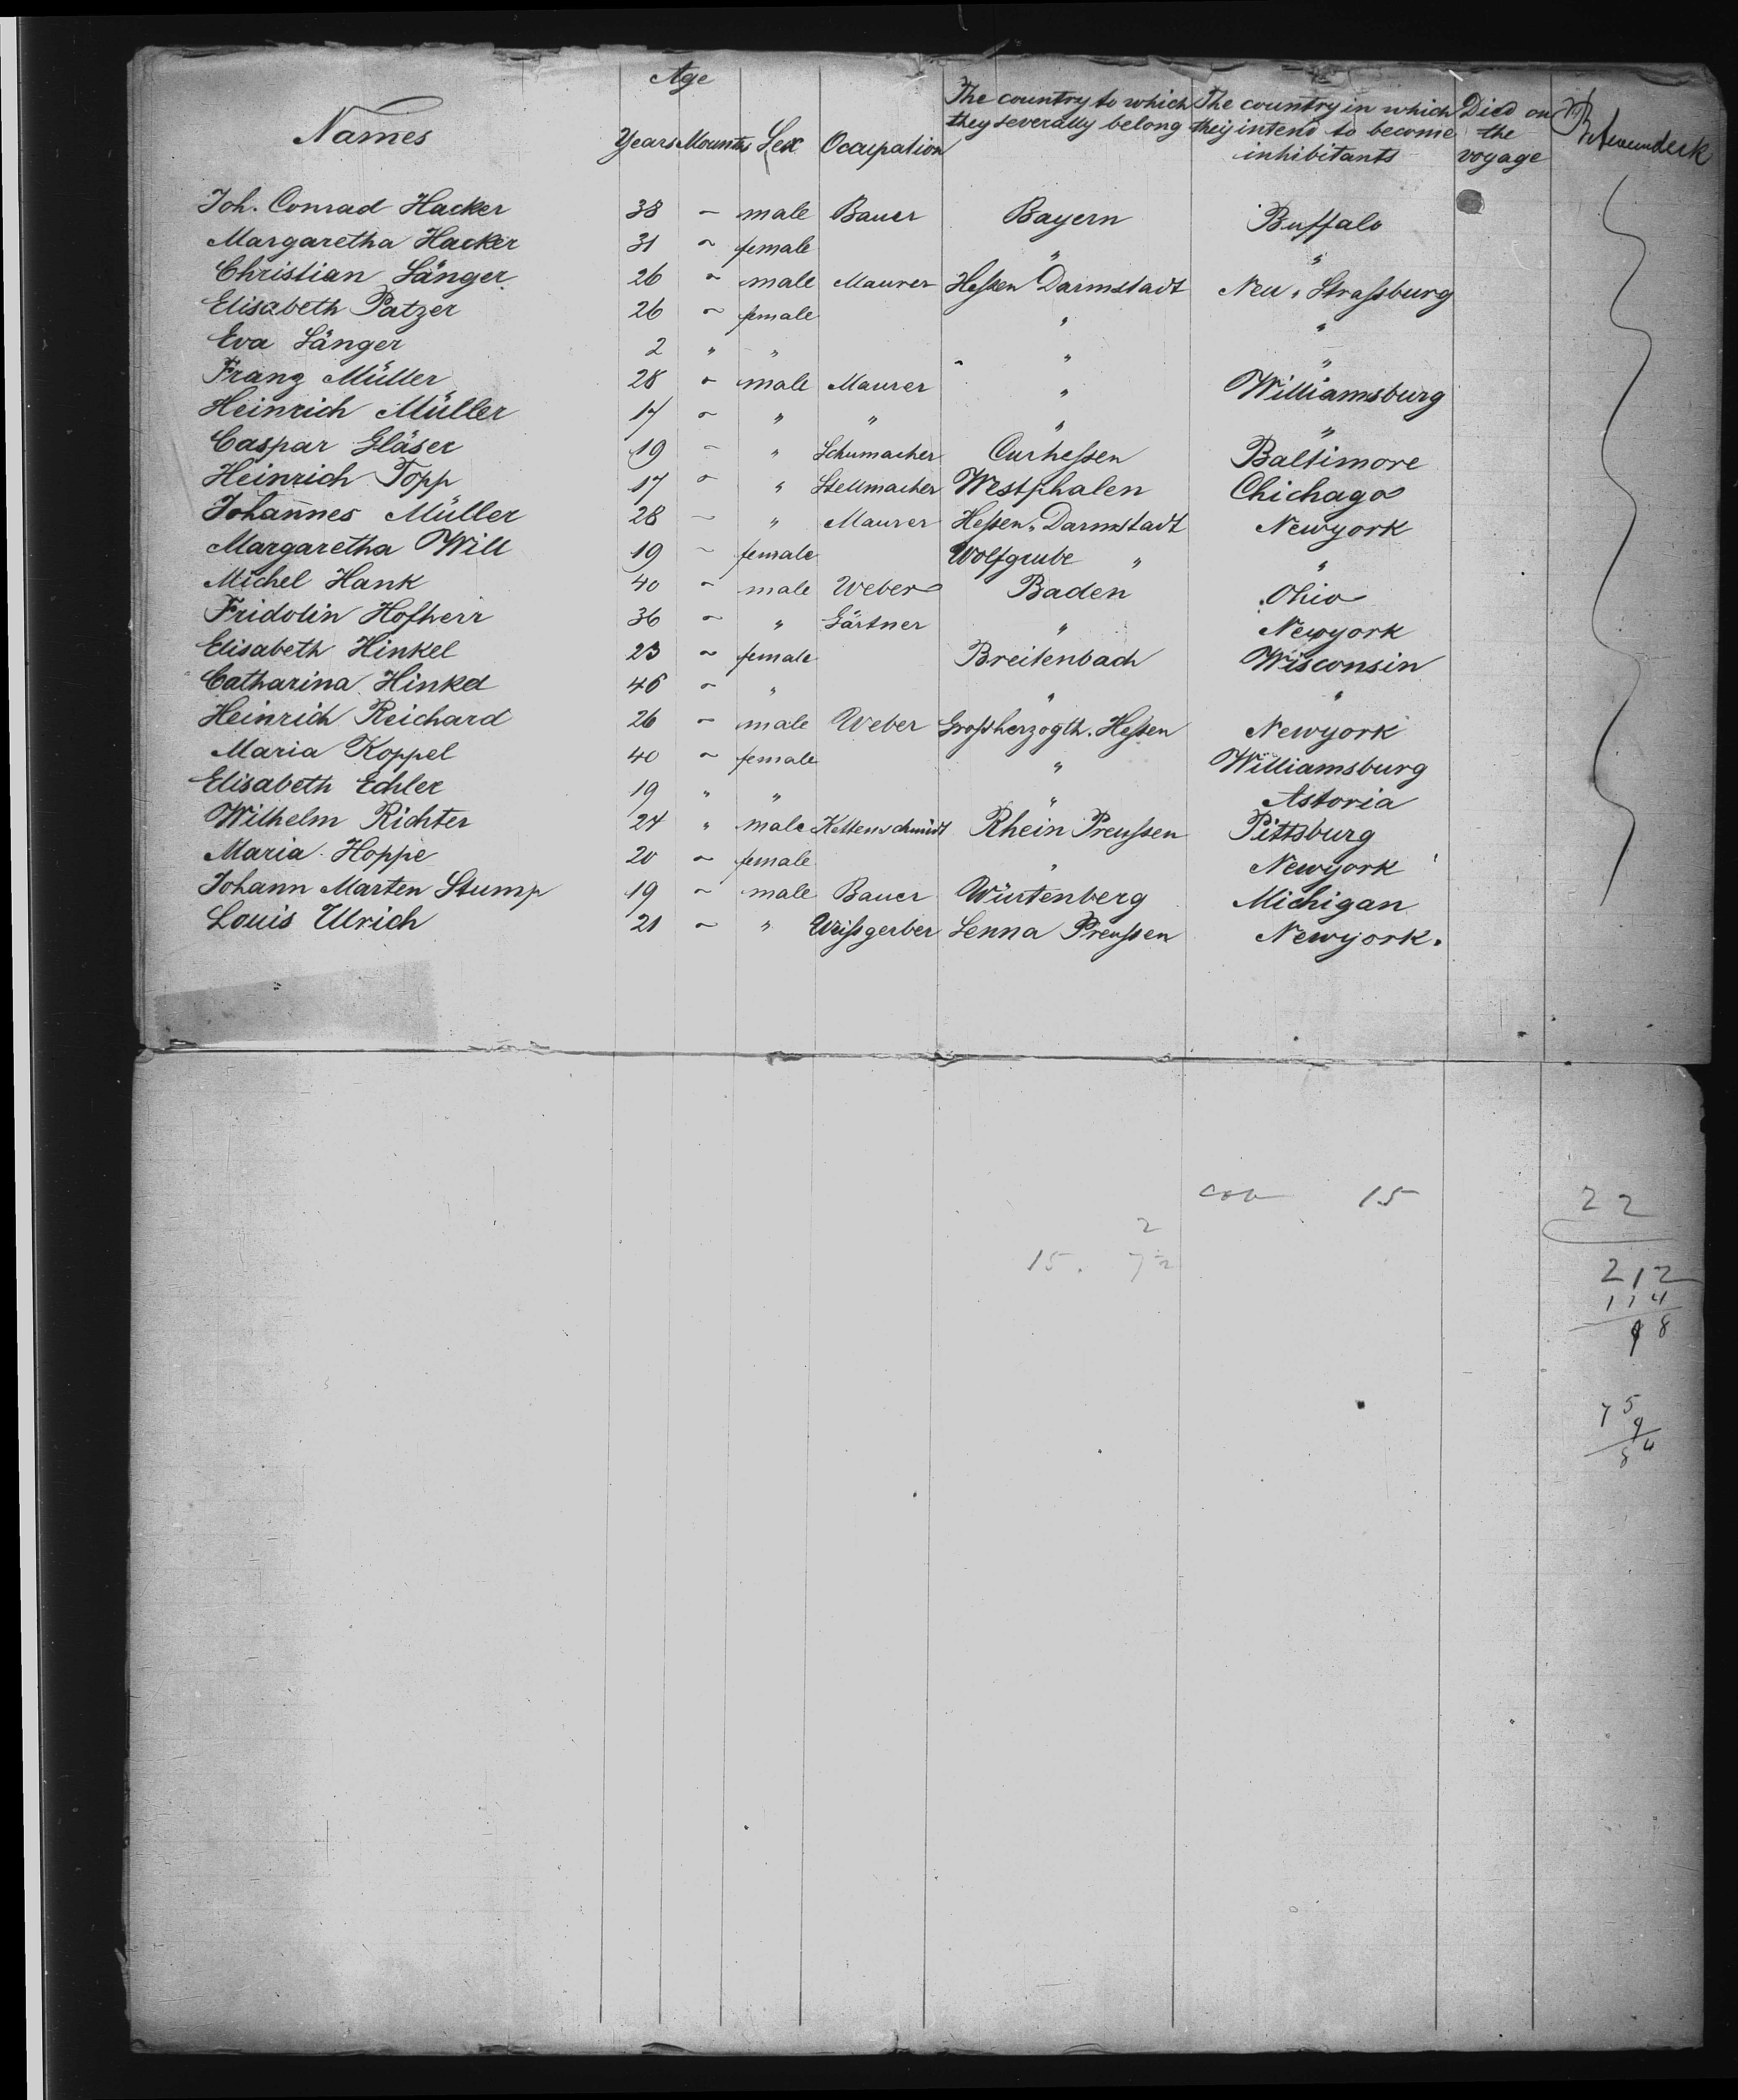 Age
Names Years Mounths Sex Occupation The country to which they severally belong The country in which they intend to become inhibitants Died on the voyage
Joh. Conrad Hacker 38 — male Bauer Bayern Buffalo
Margaretha Hacker 31 ~ female " "
Christian Sänger 26 ~ male Maurer Heſsen Darmstadt Neu " Straſsburg
Elisabeth Patzer 26 ~ female " "
Eva Sänger 2 " " " "
Franz Müller 28 ~ male Maurer " Williamsburg
Heinrich Müller 17 ~ " " " "
Caspar Gläser 19 ~ " Schumacher Curheſsen Baltimore
Heinrich Topp 17 ~ " Stellmacher Westphalen Chichago
Johannes Müller 28 ~ " Maurer Heſsen " Darmstadt Newyork
Margaretha Will 19 ~ female Wolfgrube " "
Michel Hank 40 ~ male Weber Baden Ohio
Fridolin Hofherr 36 ~ " Gärtner " Newyork
Elisabeth Hinkel 23 ~ female Breitenbach Wisconsin
Catharina Hinkel 46 ~ " " "
Heinrich Reichard 26 ~ male Weber Groſsherzogth. Heſsen Newyork
Maria Koppel 40 ~ female " Williamsburg
Elisabeth Echler 19 " " " Astoria
Wilhelm Richter 24 " male Kettenschmidt Rhein Preuſsen Pittsburg
Maria Hoppe 20 ~ female " Newyork
Johann Marten Stump 19 ~ male Bauer Würtenberg Michigan
Louis Ulrich 21 ~ " Weiſsgerber Senna Preuſsen Newyork.
15 22
2
15. 7½
212
114
98
75
9
84